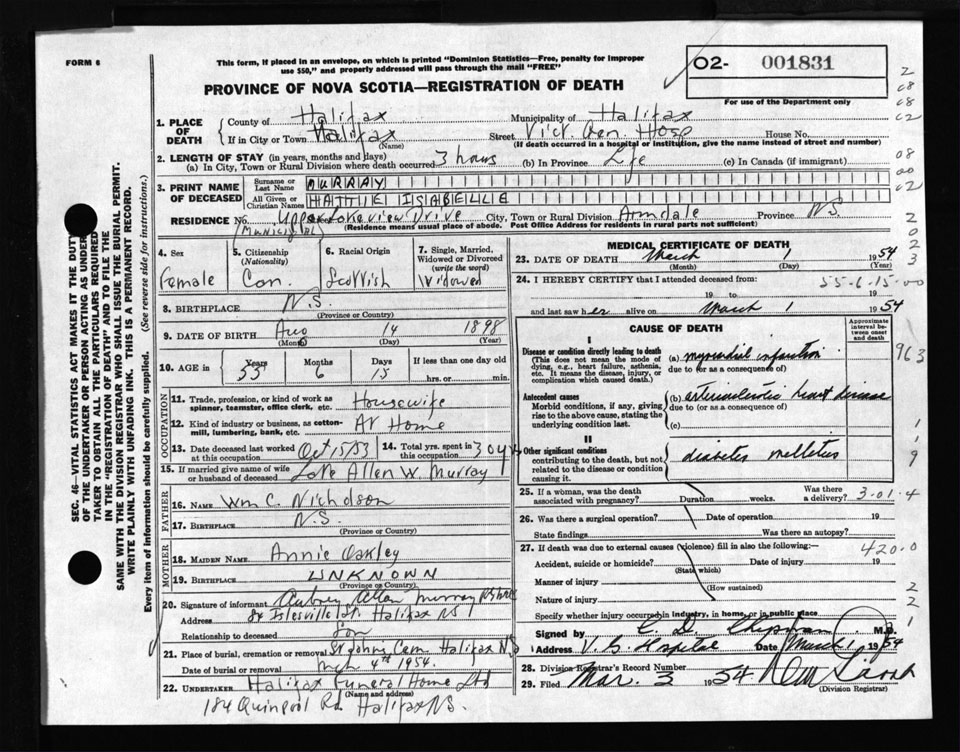 FORM 6
This form, if placed in an envelope, on which is printed "Dominion Statistics—Free, penalty for improper
use $50," and properly addressed will pass through the mail "FREE"
O2- 001831
PROVINCE OF NOVA SCOTIA—REGISTRATION OF DEATH
For use of the Department only
1. PLACE OF DEATH
County of Halifax Municipality of Halifax
If in City or Town Halifax (Name) Street Vict. Gen. Hosp House No.
(If death occurred in a hospital or institution, give the name instead of street and number)
2. LENGTH OF STAY (in years, months and days)
(a) In City, Town or Rural Division where death occurred 3 hours (b) In Province Life (c) In Canada (if immigrant)
3. PRINT NAME OF DECEASED
Surname or Last Name MURRAY
All Given or Christian Names HATTIE ISABELLE
RESIDENCE No. Upper Lakeview Drive City, Town or Rural Division Armdale Province N.S.
Municipal (Residence means usual place of abode. Post Office Address for residents in rural parts not sufficient)
4. Sex Female
5. Citizenship (Nationality) Can.
6. Racial Origin Scottish
7. Single, Married, Widowed or Divorced (write the word) Widowed
8. BIRTHPLACE N.S.
(Province or Country)
9. DATE OF BIRTH Aug 14 1898
(Month) (Day) (Year)
10. AGE in Years 55 Months 6 Days 15 If less than one day old
hrs. or min.
OCCUPATION
11. Trade, profession, or kind of work as
spinner, teamster, office clerk, etc. Housewife
12. Kind of industry or business, as cotton-
mill, lumbering, bank, etc. At Home
13. Date deceased last worked at this occupation Oct 15/53
14. Total yrs. spent in this occupation 30 yrs
15. If married give name of wife
or husband of deceased Late Allen W. Murray
FATHER
16. NAME Wm C. Nicholson
17. BIRTHPLACE N.S.
(Province or Country)
MOTHER
18. MAIDEN NAME Annie Oakley
19. BIRTHPLACE UNKNOWN
(Province or Country)
20. Signature of informant Aubrey Allan Murray
Address 84 Islesville St. Halifax NS
Relationship to deceased Son
21. Place of burial, cremation or removal St Johns Cem. Halifax NS
Date of burial or removal Mch 4th 1954.
22. UNDERTAKER Halifax Funeral Home Ltd
(Name and address)
184 Quinpool Rd Halifax NS.
MEDICAL CERTIFICATE OF DEATH
23. DATE OF DEATH March 1 1954
(Month) (Day) (Year)
24. I HEREBY CERTIFY that I attended deceased from: 55-6-15-00
19 to 19
and last saw her alive on March 1 1954
CAUSE OF DEATH
Approximate interval between onset and death
I
Disease or condition directly leading to death
(This does not mean the mode of
dying, e.g., heart failure, asthenia,
etc. It means the disease, injury, or
complication which caused death.)
(a) myocardial infarction
due to (or as a consequence of)
963
Antecedent causes
Morbid conditions, if any, giving
rise to the above cause, stating the
underlying condition last.
(b) arteriosclerotic heart disease
due to (or as a consequence of)
(c)
II
Other significant conditions
contributing to the death, but not
related to the disease or condition
causing it.
diabetes mellitus
25. If a woman, was the death
associated with pregnancy? Duration weeks. Was there a delivery? 3-01-4
26. Was there a surgical operation? Date of operation 19
State findings Was there an autopsy?
27. If death was due to external causes (violence) fill in also the following:—
420.0
Accident, suicide or homicide? (State which) Date of injury 19
Manner of injury (How sustained)
Nature of injury
Specify whether injury occurred in industry, in home, or in public place
Signed by M.D.
Address V. G. Hospital Date March 1 1954
28. Division Registrar's Record Number
29. Filed Mar. 3 1954
(Division Registrar)
SEC. 46—VITAL STATISTICS ACT MAKES IT THE DUTY
OF THE UNDERTAKER OR PERSON ACTING AS UNDER-
TAKER TO OBTAIN ALL THE PARTICULARS REQUIRED
IN THE "REGISTRATION OF DEATH" AND TO FILE THE
SAME WITH THE DIVISION REGISTRAR WHO SHALL ISSUE THE BURIAL PERMIT.
WRITE PLAINLY WITH UNFADING INK. THIS IS A PERMANENT RECORD.
Every item of information should be carefully supplied. (See reverse side for instructions.)